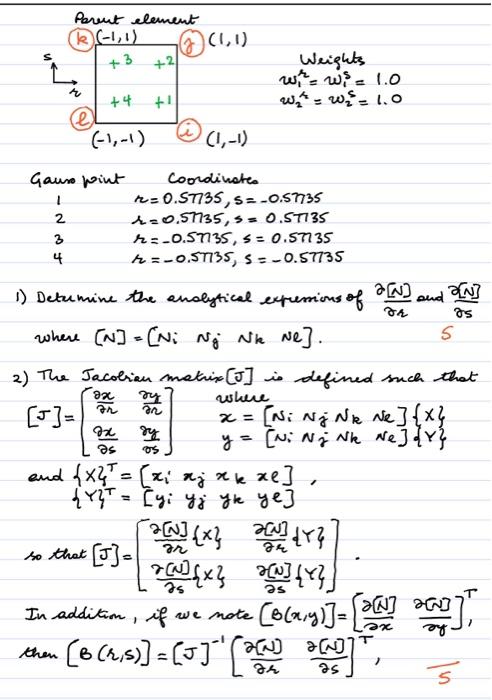 Parent element
k (-1,1) j (1,1)
s +3 +2 Weights
r w₁ʳ = w₁ˢ = 1.0
+4 +1 w₂ʳ = w₂ˢ = 1.0
l i
(-1,-1) (1,-1)
Gauss point Coordinates
1 r = 0.57735, s = -0.57735
2 r = 0.57735, s = 0.57735
3 r = -0.57735, s = 0.57735
4 r = -0.57735, s = -0.57735
1) Determine the analytical expressions of ∂[N]/∂r and ∂[N]/∂s
where [N] = [Ni Nj Nk Ne]. 5
2) The Jacobian matrix [J] is defined such that
[J] = [∂x/∂r ∂y/∂r; ∂x/∂s ∂y/∂s] where
x = [Ni Nj Nk Ne]{X}
y = [Ni Nj Nk Ne]{Y}
and {X}ᵀ = [xi xj xk xe],
{Y}ᵀ = [yi yj yk ye]
so that [J] = [∂[N]/∂r {X} ∂[N]/∂r {Y}; ∂[N]/∂s {X} ∂[N]/∂s {Y}].
In addition, if we note [B(x,y)] = [∂[N]/∂x ∂[N]/∂y]ᵀ,
then [B(r,s)] = [J]⁻¹ [∂[N]/∂r ∂[N]/∂s]ᵀ,
5